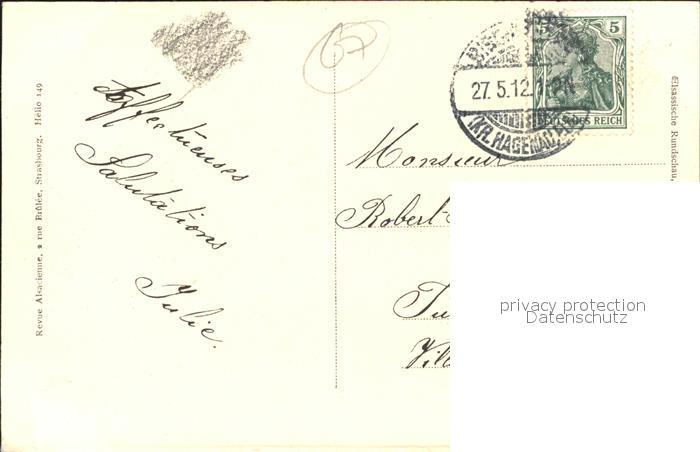 67
Affectueuses
Salutations
Julie.
Revue Alsacienne, 2 rue Brûlée, Strasbourg. Hélio 149
5
DEUTSCHES REICH
27.5.12.
(KR. HAGENAU
Elsässische Rundschau,
Monsieur
Robert
Vill
privacy protection
Datenschutz